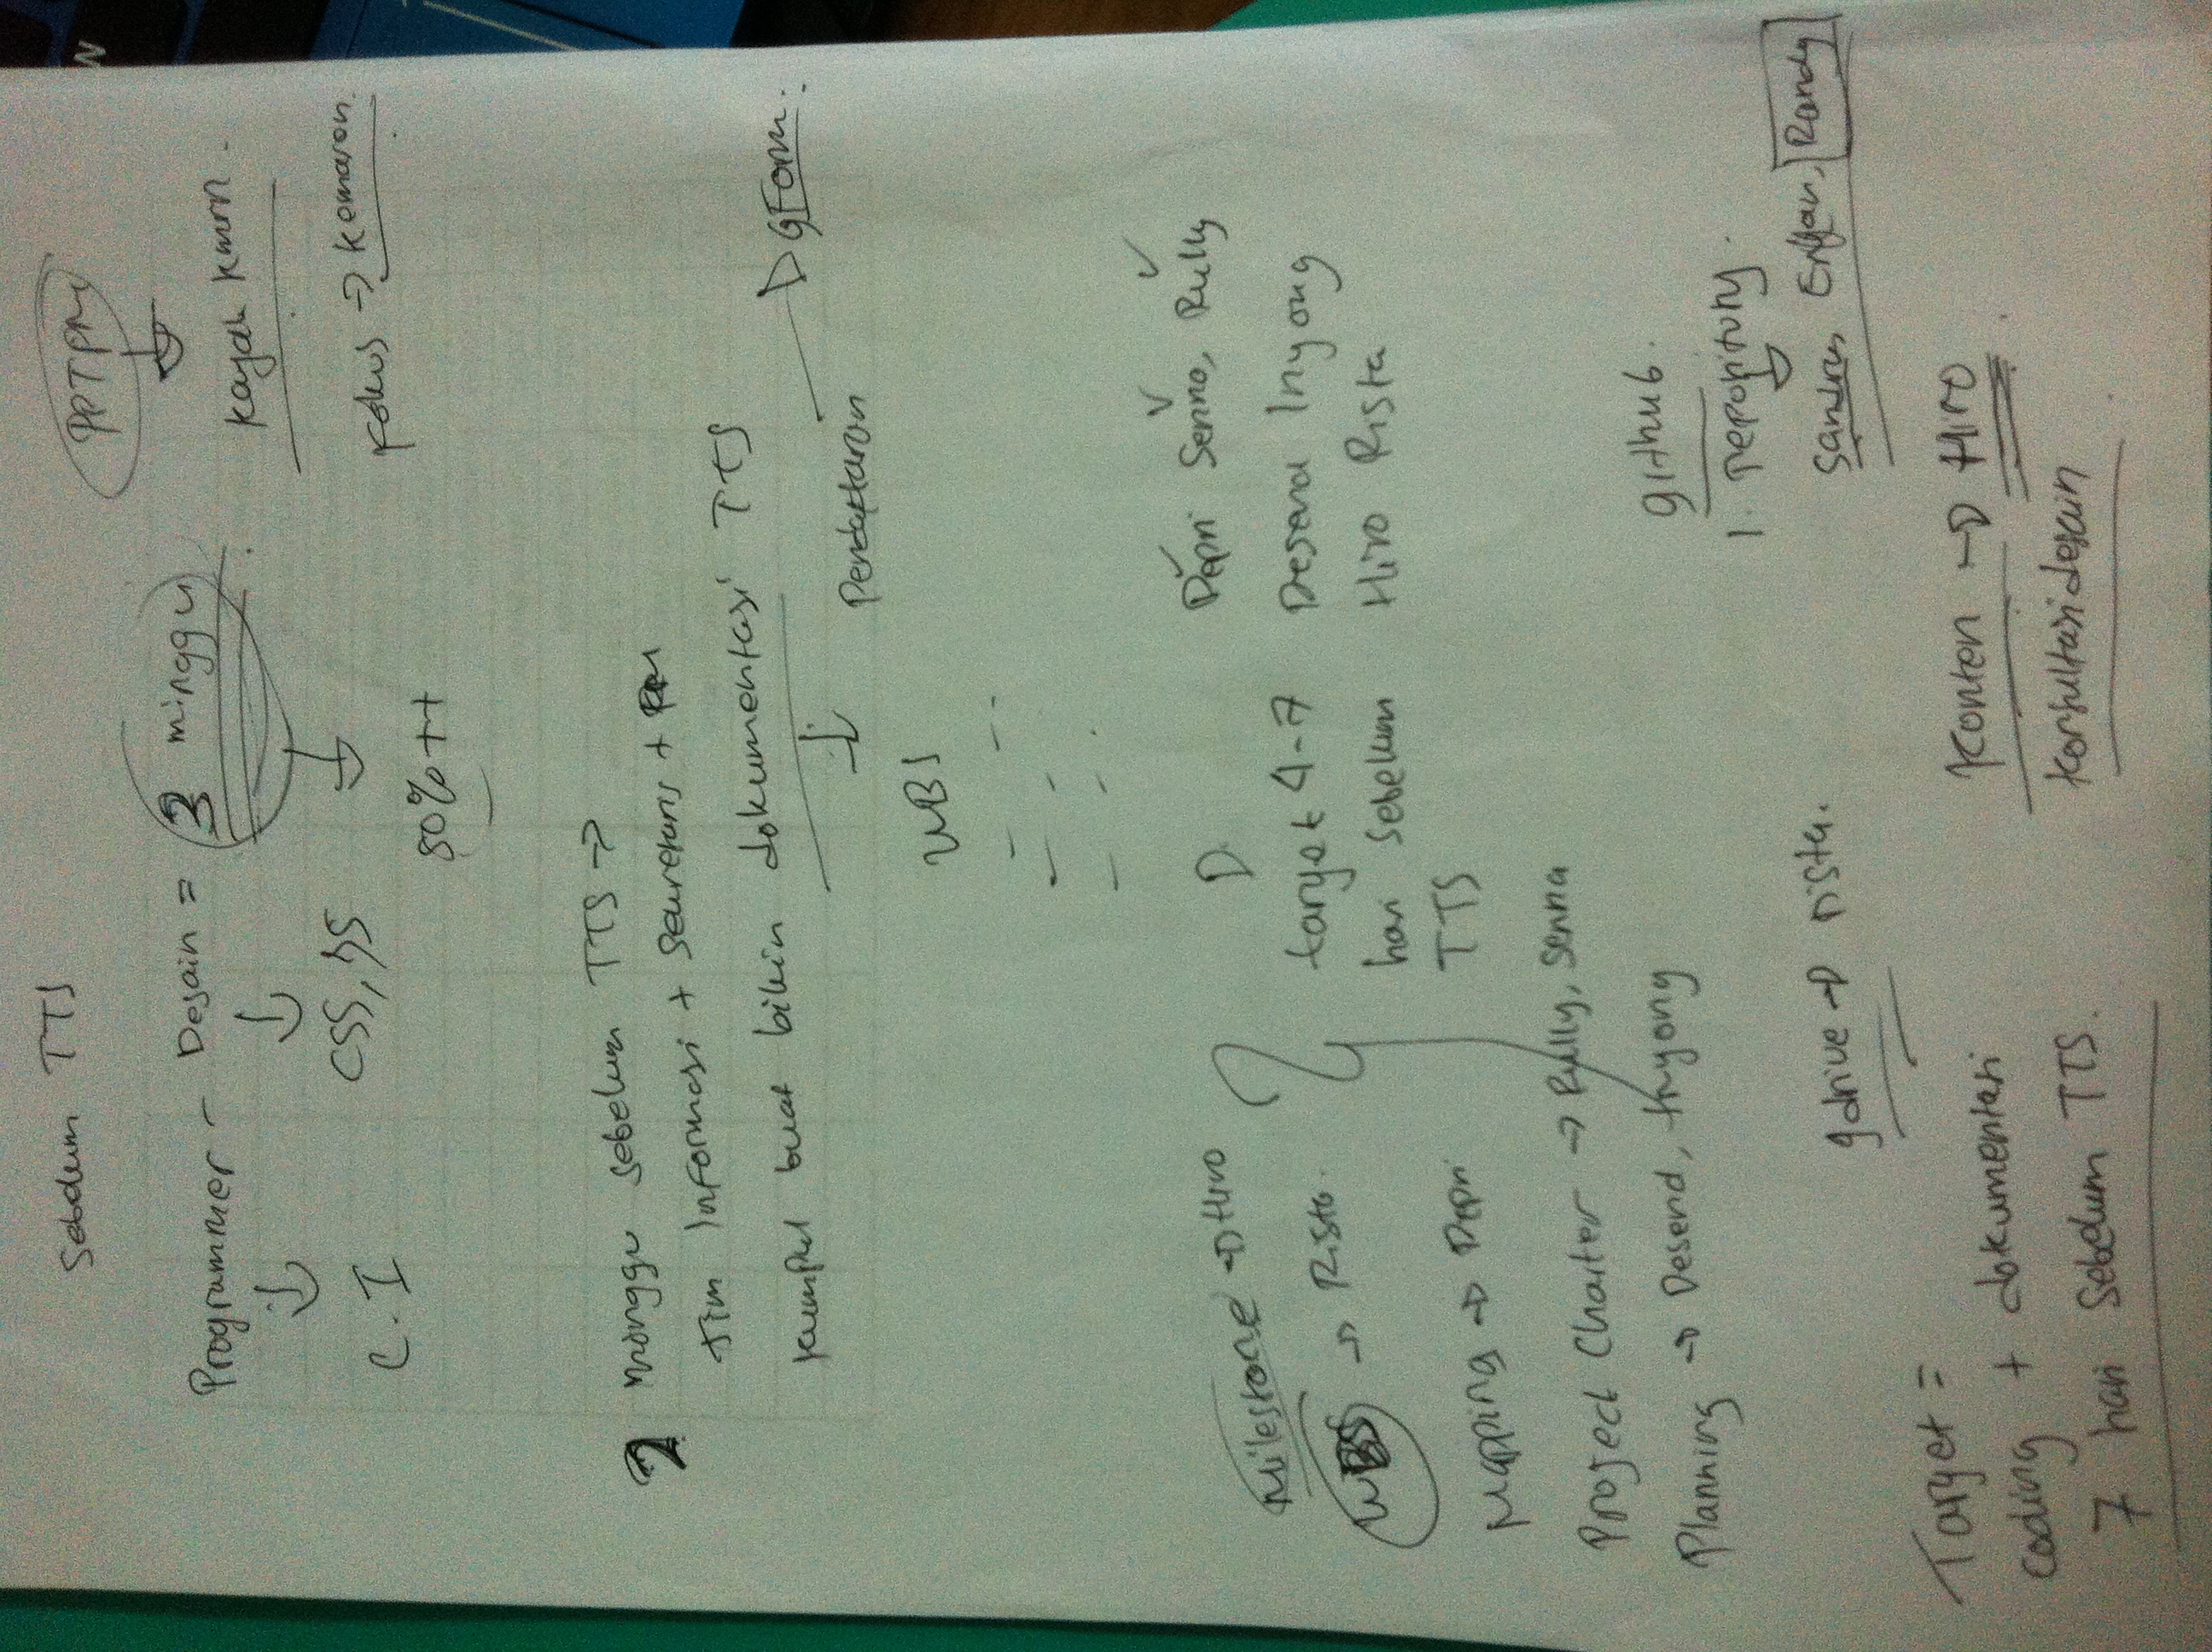 Sebelum TTS
PPTPM
Programmer - Desain = 3 minggu
kayak kmrn.
C.I
CSS, JS
80% ++
Fokus → kemaren.
2 minggu sebelum TTS →
Tim Informasi + Sekretaris + PM
kumpul buat bikin dokumentasi TTS
GForm.
Pendaftaran
WBS
Milestone → Hiro
WBS → Rista.
Mapping → Depri
Project Charter → Rully, Senna
Planning → Desend, Inyong
target 4-7
hari sebelum
TTS
Depri Senna, Rully
Desend Inyong
Hiro Rista
github.
1. repository.
Sandrus, Erfan, Randy
gdrive → rista.
Target =
coding + dokumentasi
7 hari sebelum TTS.
Konten → Hiro
Konsultasi desain